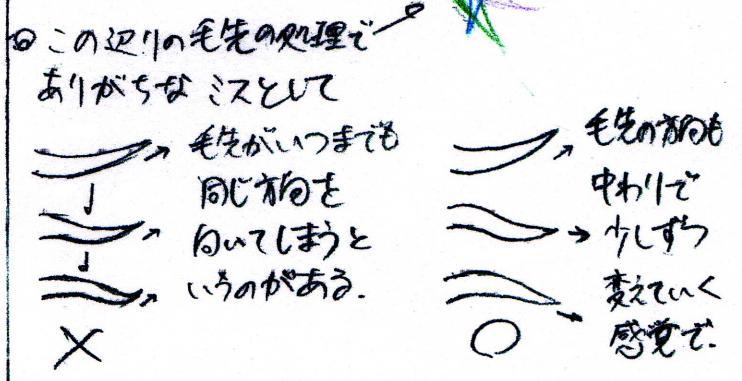 ◎この辺りの毛先の処理で
ありがちなミスとして
毛先がいつまでも
同じ方向を
向いてしまうと
いうのがある.
×
毛先の方向も
中わりで
少しずつ
変えていく
感覚で.
○